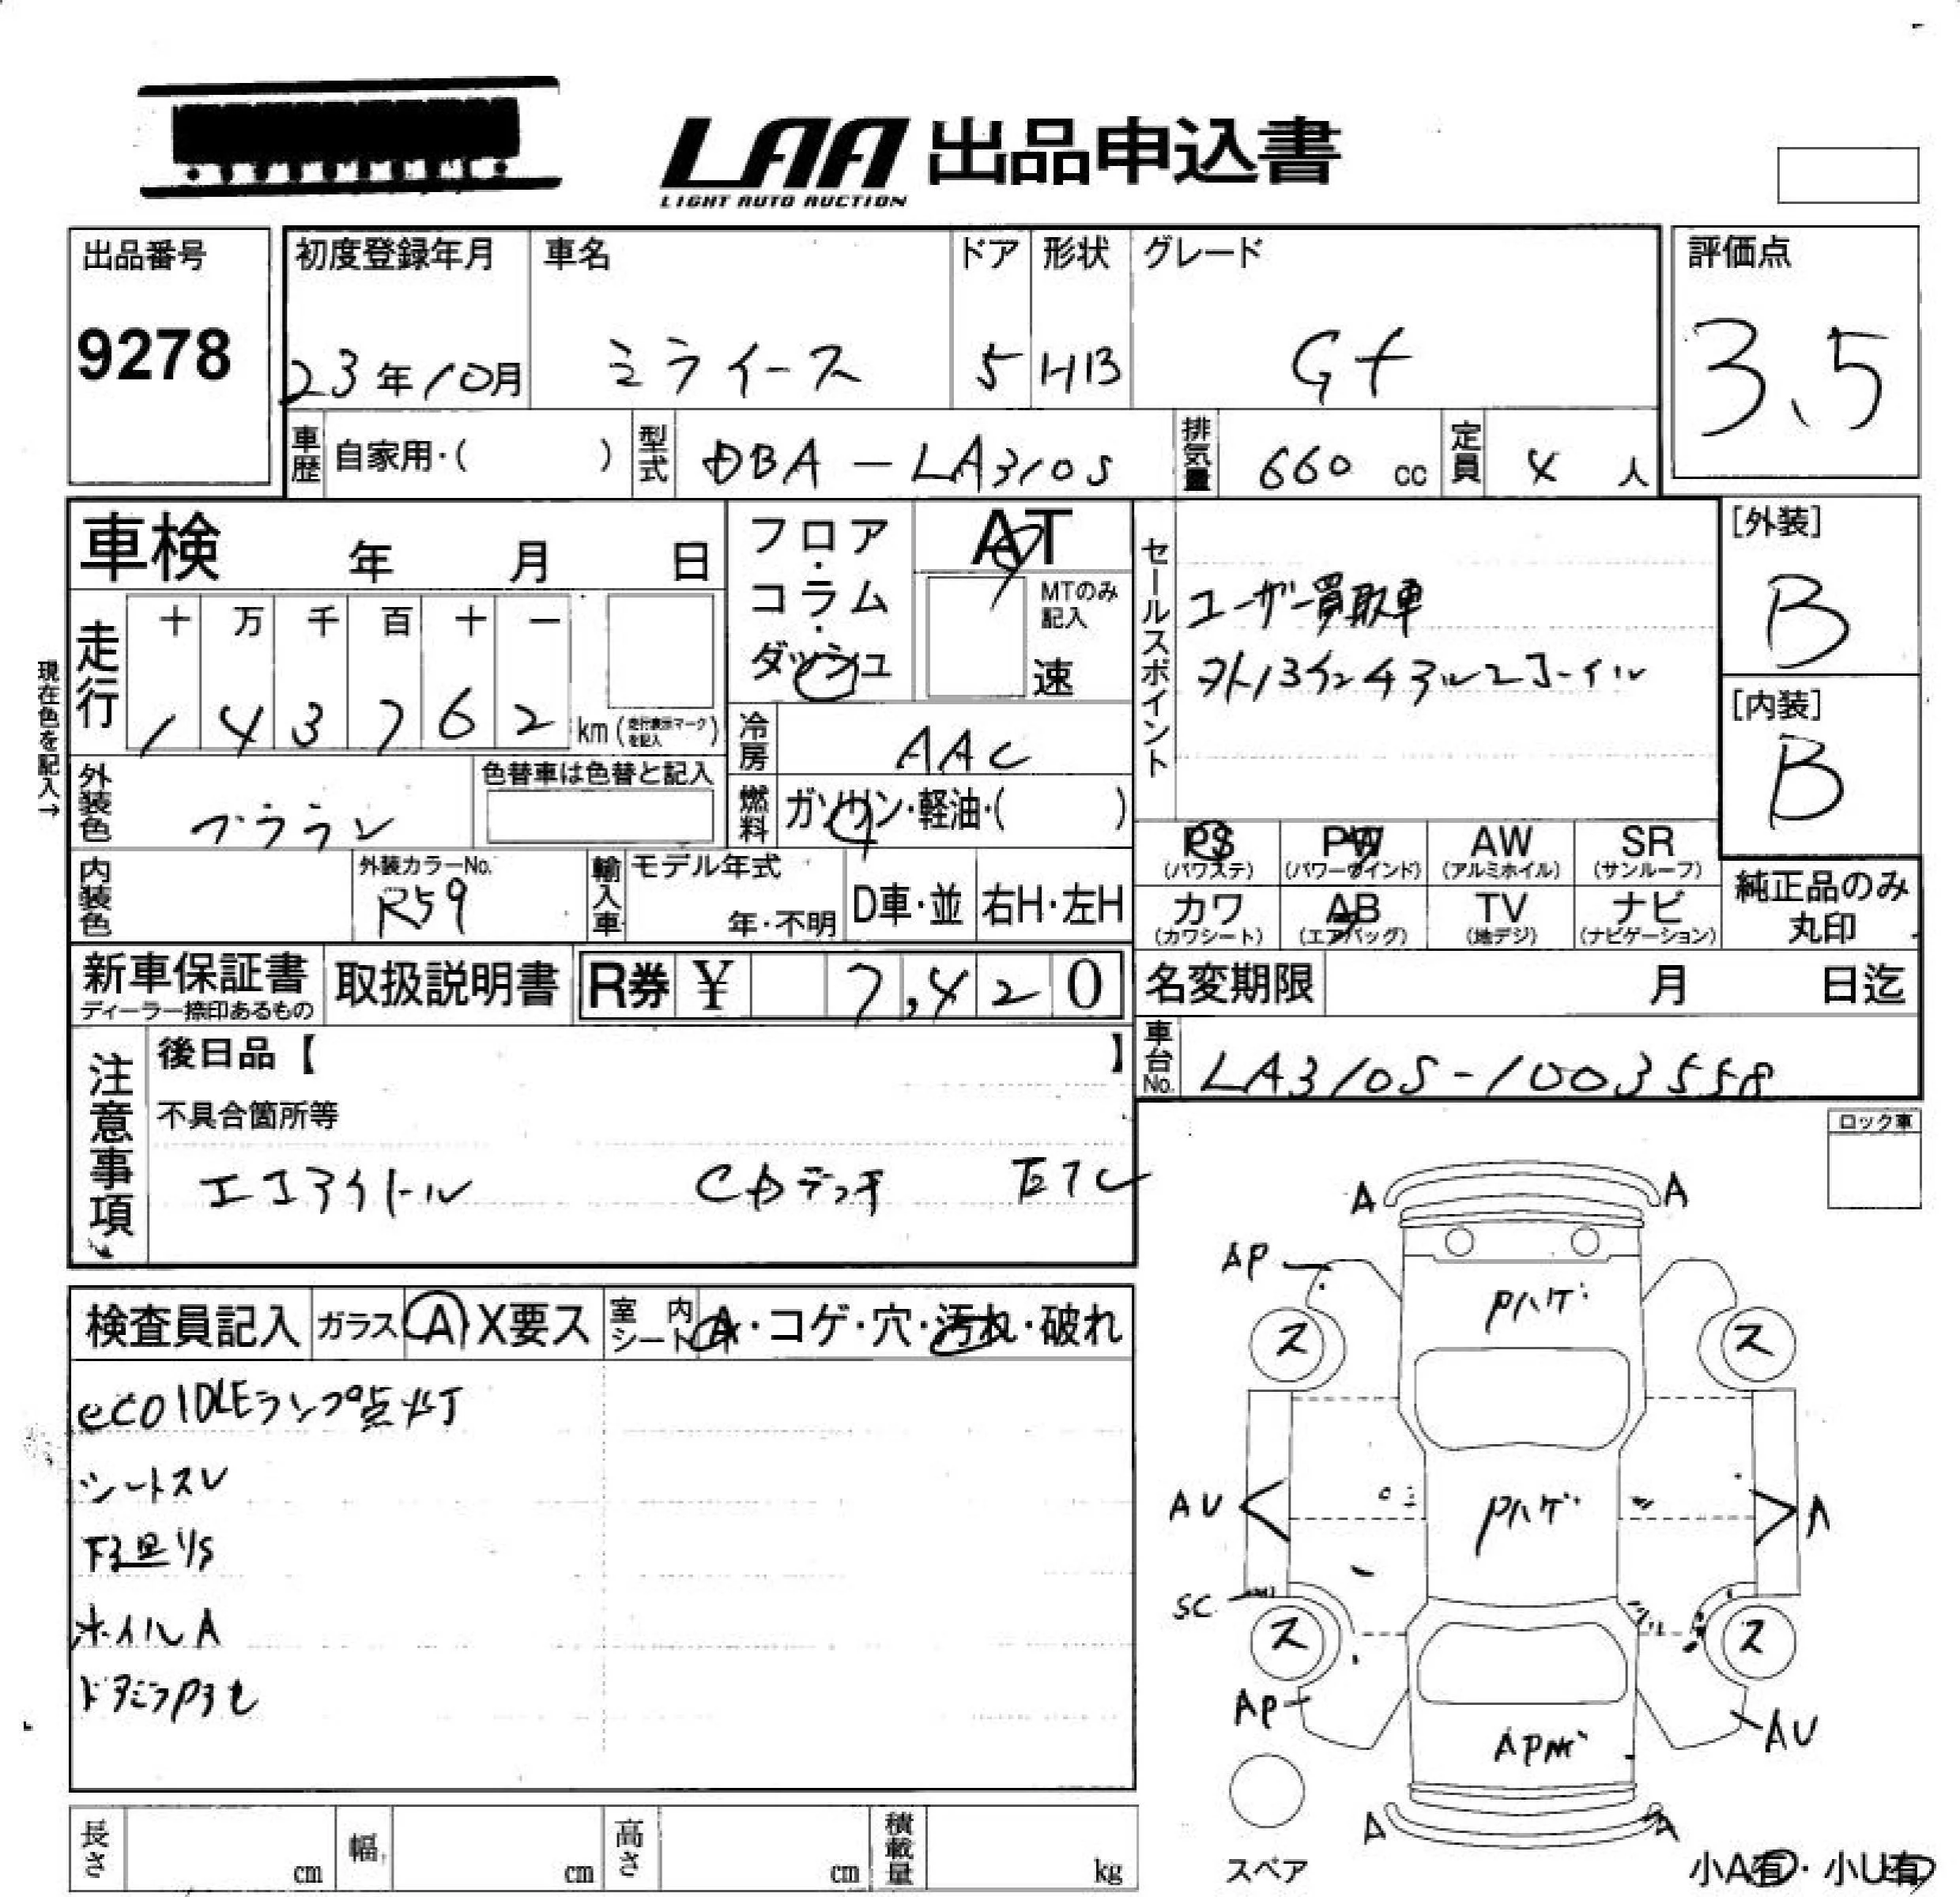 LAA 出品申込書
LIGHT AUTO AUCTION
出品番号
9278
初度登録年月
23年10月
車名
ミライース
ドア
5
形状
HB
グレード
Gf
評価点
3.5
車歴 自家用・( )
型式 DBA-LA310S
排気量 660 cc
定員 4 人
車検 年 月 日
フロア・コラム・ダッシュ
AT
MTのみ記入
速
現在色を記入→
走行
十 万 千 百 十 一
1 4 3 7 6 2 km (走行表示マークを記入)
冷房 AAC
外装色
色替車は色替と記入
燃料 ガソリン・軽油・( )
セールスポイント
ユーザー買取車
[外装]
B
[内装]
B
PS (パワステ)
PW (パワーウインド)
AW (アルミホイル)
SR (サンルーフ)
カワ (カワシート)
AB (エアバッグ)
TV (地デジ)
ナビ (ナビゲーション)
純正品のみ丸印
内装色
外装カラーNo.
R59
輸入車
モデル年式
年・不明
D車・並
右H・左H
新車保証書
ディーラー捺印あるもの
取扱説明書
R券 ¥ 7,420
名変期限 月 日迄
車台No. LA310S-1003558
注意事項
後日品【 】
不具合箇所等
エコアイドル CDデッキ ETC
ロック車
検査員記入
ガラス A X要ス
室内シート A・コゲ・穴・汚れ・破れ
eco IDLEランプ点灯
シートスレ
下廻り/S
ホイルA
A A
AP
Pハゲ
ス ス
AU
Pハゲ
A
SC
ス ス
AP
AU
A A
スペア
小A有・小U有
長さ cm
幅 cm
高さ cm
積載量 kg